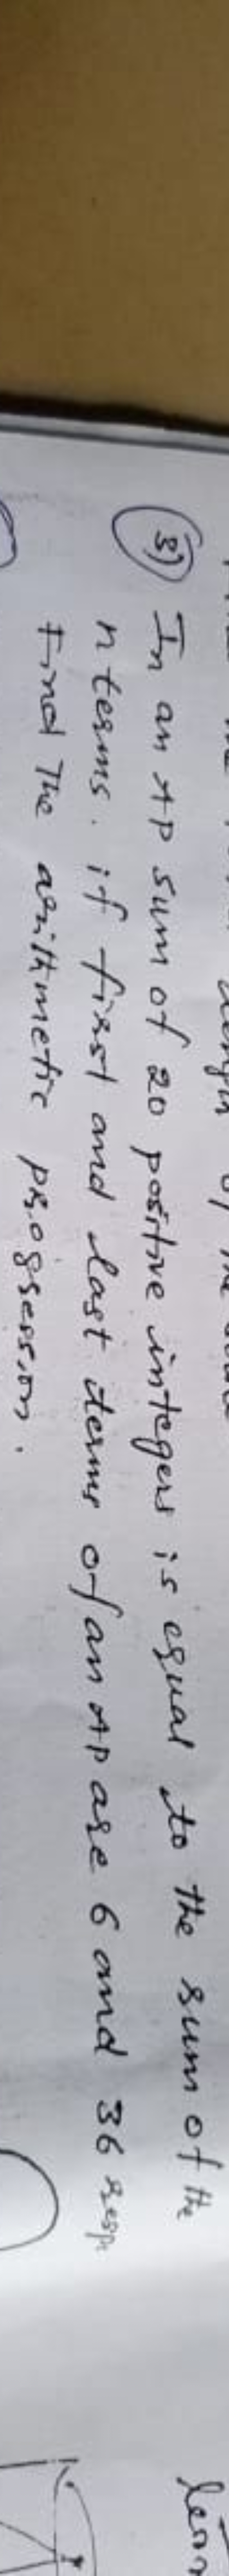 3) In an AP sum of 20 positive integers is equal to the sum of the
n terms. if first and last terms of an AP are 6 and 36 resp.
Find The arithmetic progression.